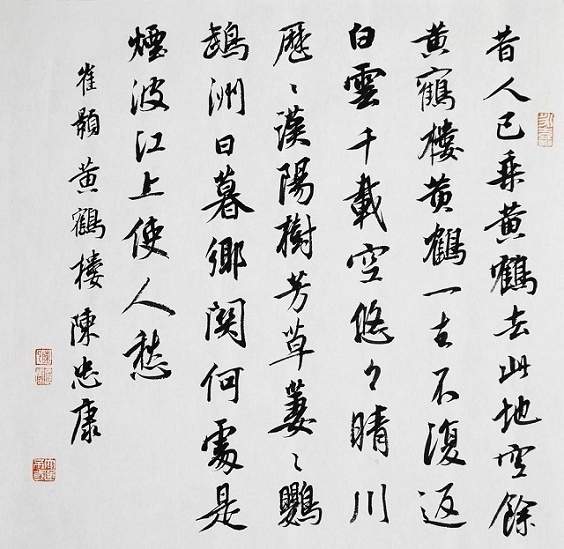 昔人已乘黄鶴去此地空餘
黄鶴樓黄鶴一去不復返
白雲千載空悠々晴川
歷々漢陽樹芳草萋々鸚
鵡洲日暮鄉関何處是
煙波江上使人愁
崔顥黄鶴樓陳忠康